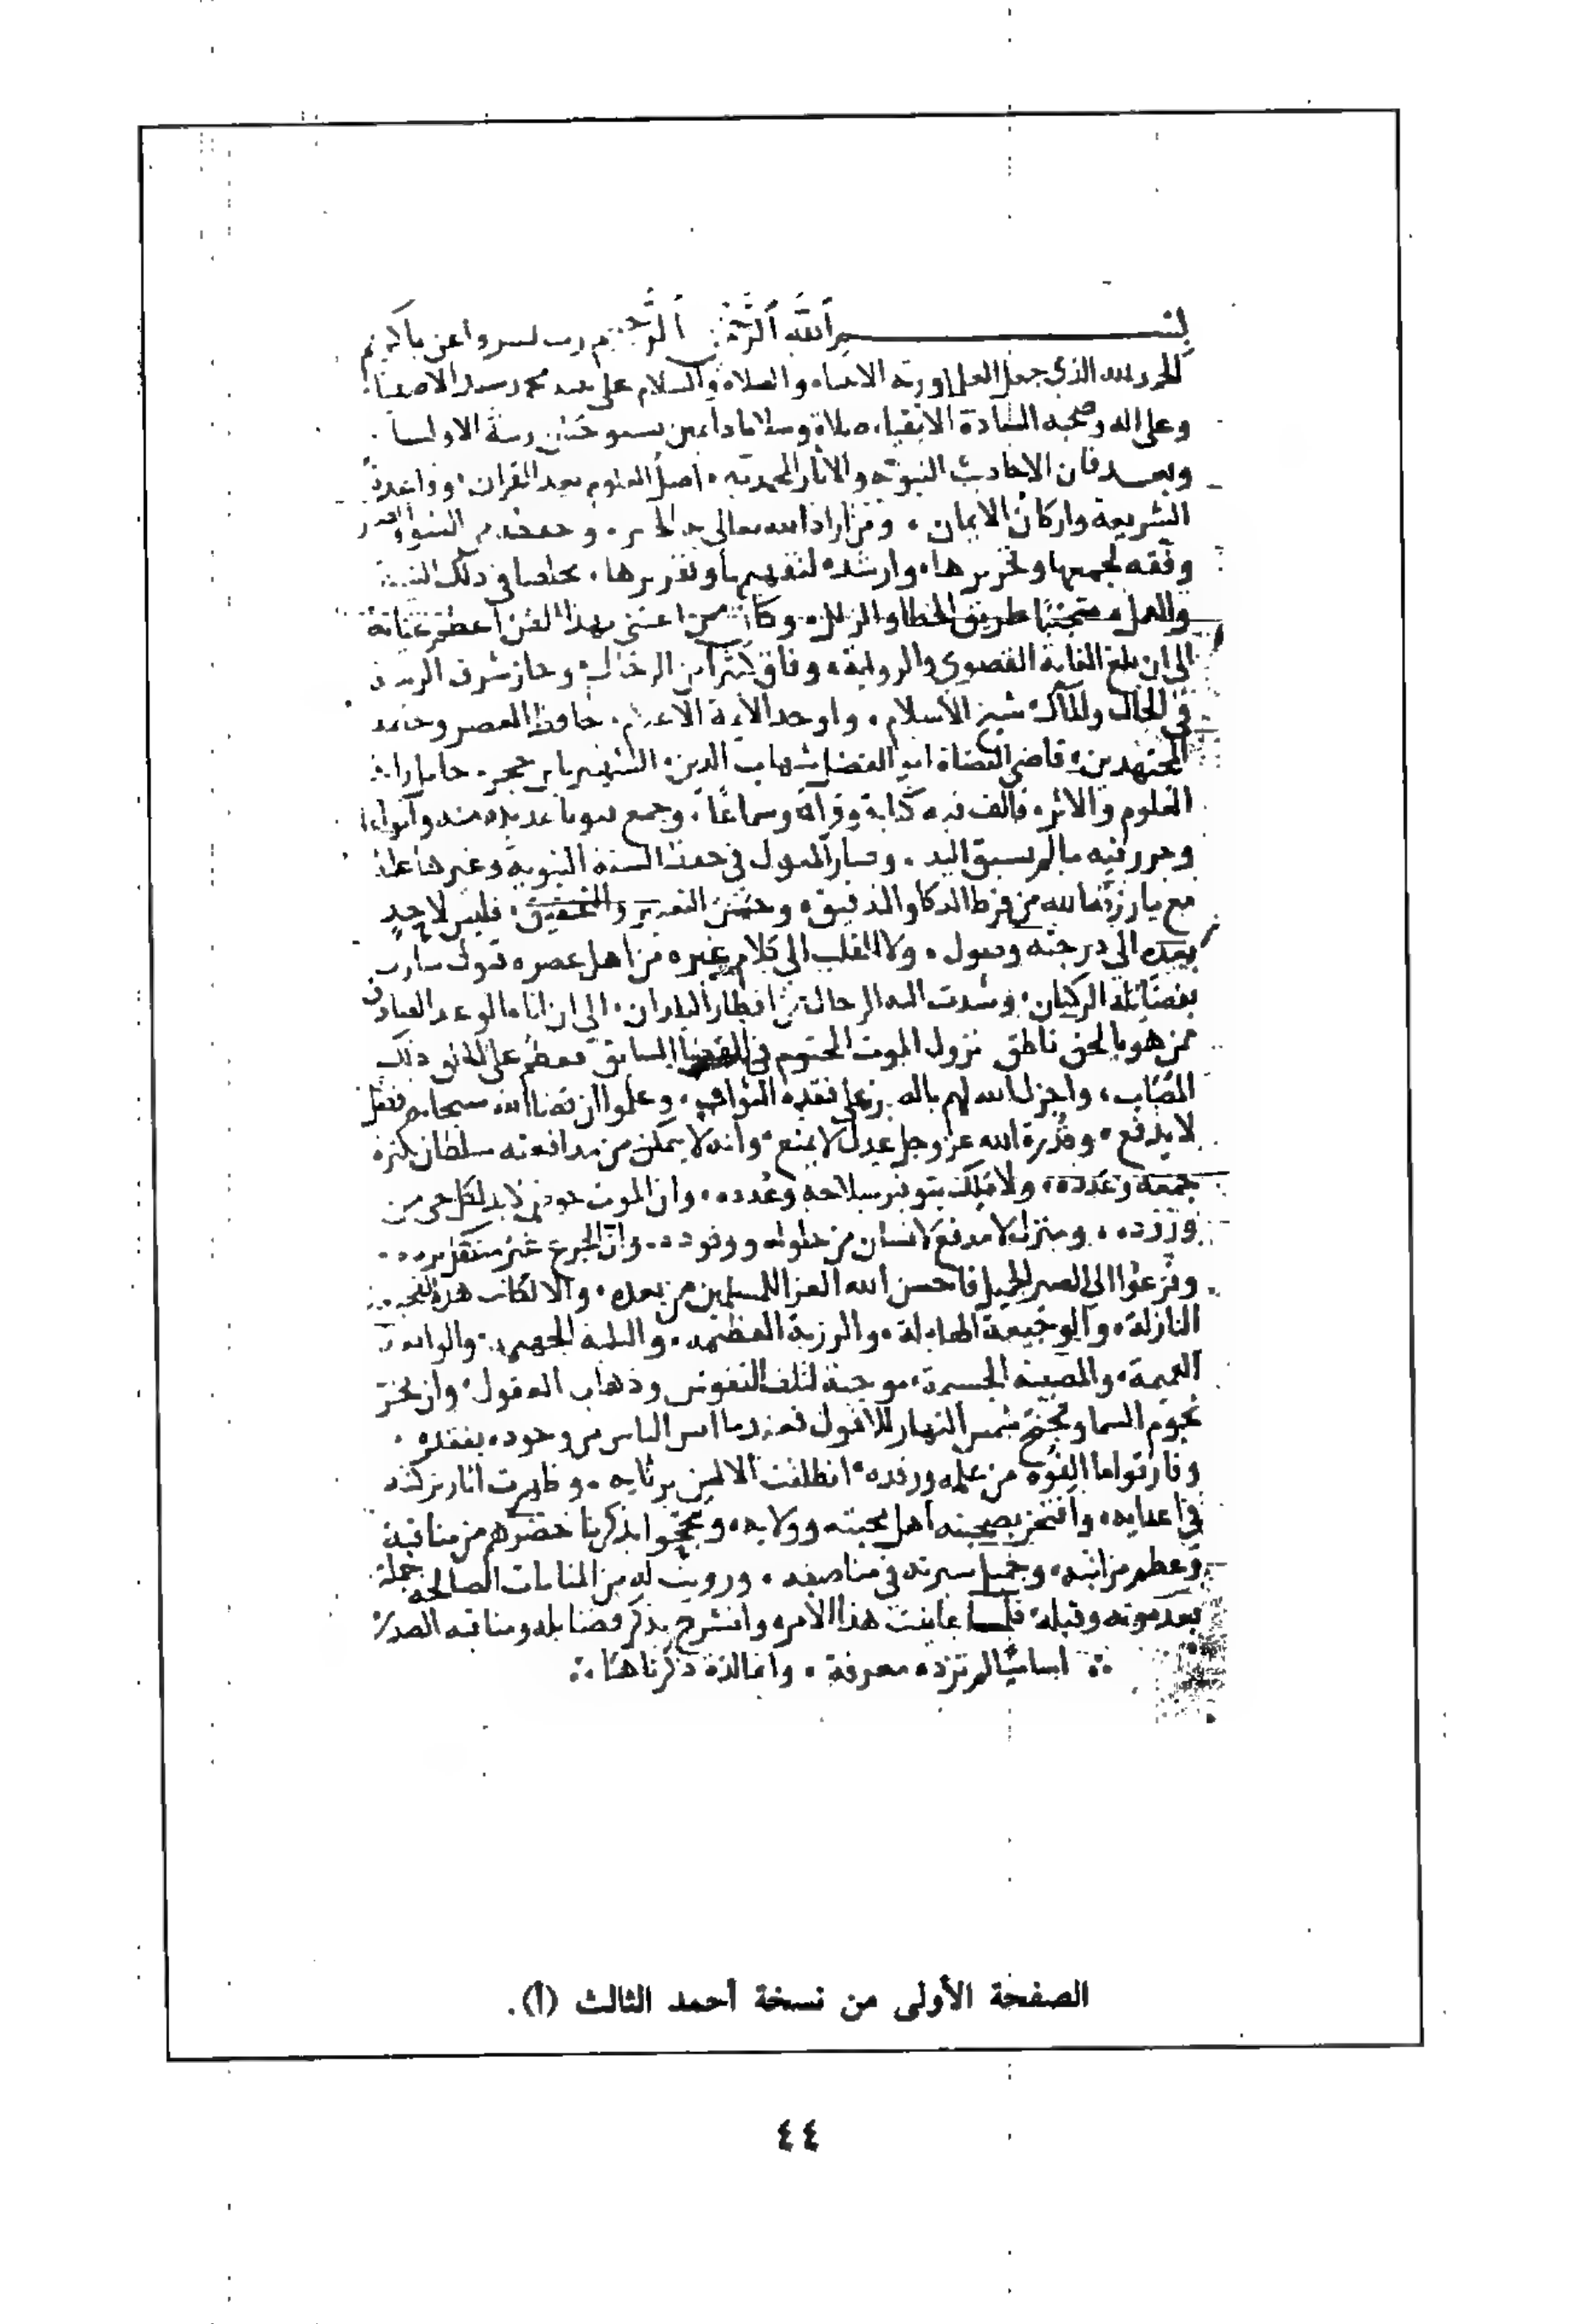 بسم الله الرحمن الرحيم رب يسر واعن يا كريم
الحمد لله الذي جعل العلما ورثة الانبياء والصلاة والسلام على محمد سيد الاصفيا
وعلى اله وصحبه السادة الاتقياء صلاة وسلاما دايمين الاوليا
وبعد فان الاحاديث النبوية والاثار المحمدية اصل العلوم بعد القران وقاعدة
الشريعة واركان الايمان ومن اراد الله تعالى به
وفقه لجمعها وتحريرها وارشده لتفهيمها وتقريرها مخلصا في ذلك النية
والعمل متجنبا طريق الخطا والزلل وكان ممن اعتنى بهذا الفن اعظم عناية
الى ان بلغ الغاية القصوى والرواية وفاق كثيرا من الرجال وحاز شرف
في الحال والمآل شيخ الاسلام واوحد الايمة الاعلام حافظ العصر
المجتهدين قاضي القضاة ابو الفضل شهاب الدين الشهير بابن حجر حامل راية
العلوم والاثر فالف فيه كتابة وقراة وسماعا وجمع عديدة منه
وحرر فيه ما لم يسبق اليه وصار المعول في حفظ السنة النبوية وغيرها عليه
مع ما رزقه الله من فرط الذكا والتدقيق وحسن التعبير والتحقيق فليس لاحد
بعده الى درجته وصول ولا القلب الى كلام غيره من اهل عصره سارت
بفضايله الركبان وشدت اليه الرحال من اقطار البلدان الى ان اتاه الوعد الصادق
ممن هو بالحق ناطق نزول الموت المحتوم في القضا السابق فعظم على ذلك
المصاب واجزل الله لهم على فقده الثواب وعلموا ان قضا الله سبحانه
لا يدفع وقدرة الله عز وجل عدل لا يمنع وانه لا يمكن من مدافعته سلطان بكثرة
جمعه وعدده ولا ملك بتوفير سلاحه وعدده وان الموت حوض لا بد لكل حي من
وروده ومنزل لا مدفع لانسان من حلوله ووفوده وان الجرح غير
وفزعوا الى الصبر الجميل فاحسن الله العزا للمسلمين من بعده والا لكانت هذه
النازلة والوجيعة الهايلة والرزية العظيمة والبلية الجهيمة
العميمة والمصيبة الجسيمة موجبة لتلف النفوس وذهاب العقول وان تخر
نجوم السما وتجنح شمس النهار للافول فعندما ايس الناس من وجوده بفقده
وفارقوا ما الفوه من علمه ورفده انطلقت الالسن برثايه وظهرت اثار
في اعدايه وافتخر بصحبته اهل محبته وولايه بذكر ما حضرهم من مناقبه
وعظم مراتبه وجميل سيرته في مناصبه ورويت له من المنامات الصالحة جملة
بعد موته وقبله فلما عاينت هذا الامر وانشرح بذكر فضايله ومناقبه الصدر
اساميا لم تزده معرفة وانما لذة ذكرناها
الصفحة الأولى من نسخة أحمد الثالث (أ).
٤٤